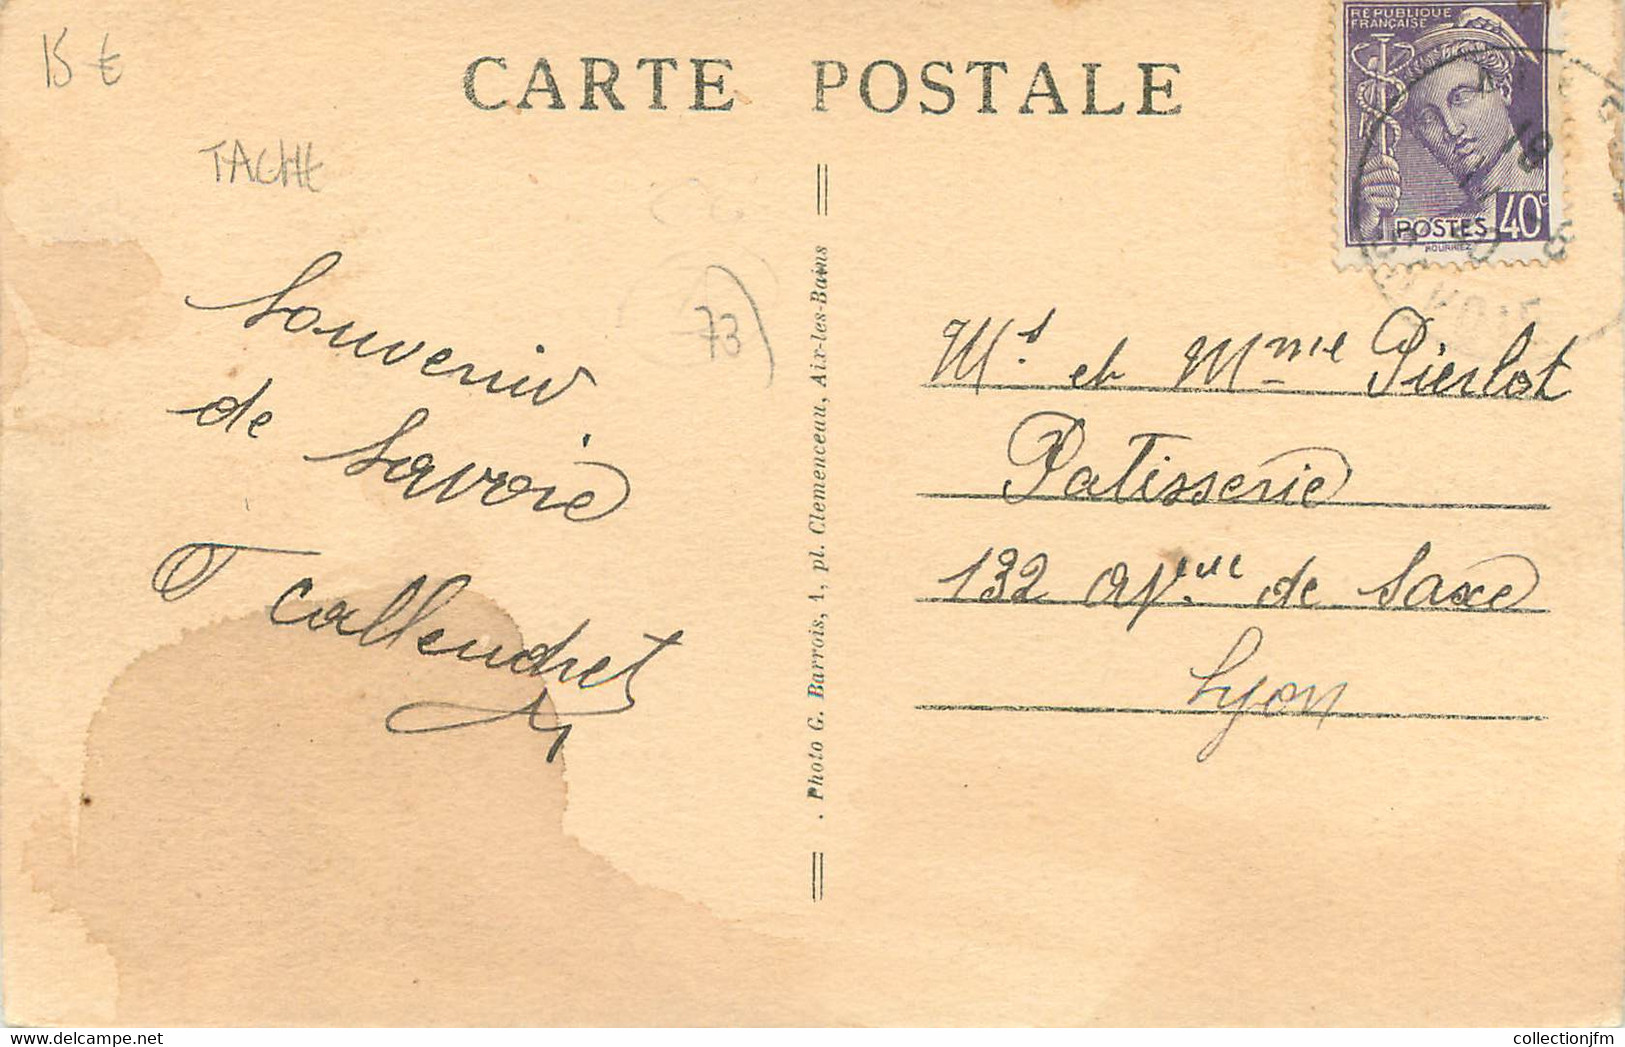 15 €
CARTE POSTALE
TACHE
RÉPUBLIQUE
FRANÇAISE
POSTES 40c
MOURIEZ
Souvenir
de Savoie
73
Callendret
Photo G. Barrois, 1, pl. Clemenceau, Aix-les-Bains
Mr et Mme Pierlot
Patisserie
132 avenue de Saxe
Lyon
collectionjfm